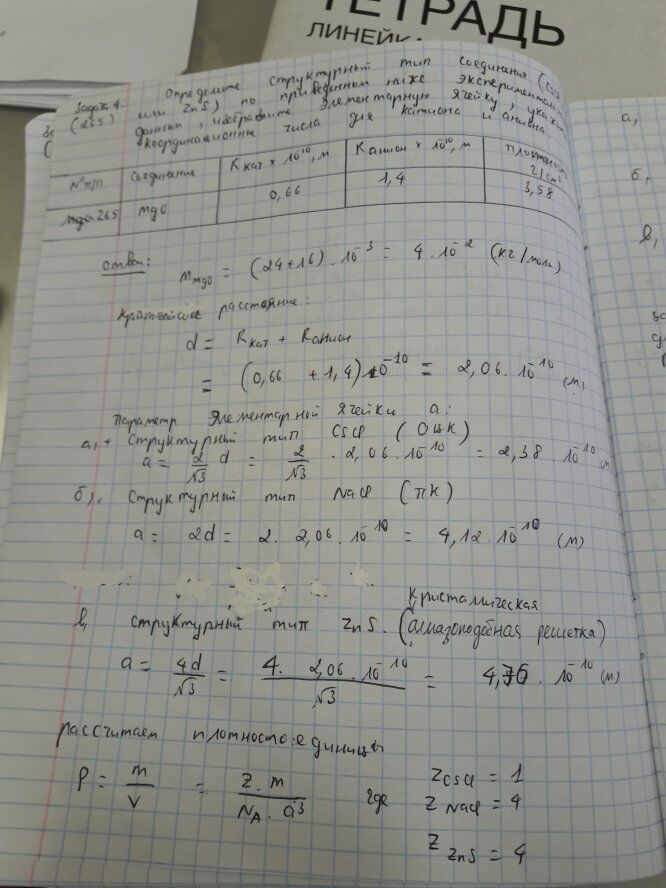 ТЕТРАДЬ
ЛИНЕЙК
Задача 4. Определите структурный тип соединения
(265) или ZnS) по приведенным ниже эксперименталь
данным, изобразите элементарную ячейку, ука
координационные числа для катиона и аниона.
N°п/п Соединение Rкат × 10⁻¹⁰, м Rанион × 10⁻¹⁰, м плотность г/см³
265 MgO 0,66 1,4 3,58
Ответ: m MgO = (24+16) · 10⁻³ = 4 · 10⁻² (кг/моль)
Кратчайшее расстояние:
d = Rкат + Rанион
= (0,66 + 1,4) 10⁻¹⁰ = 2,06 · 10⁻¹⁰ (м)
Параметр элементарной ячейки a:
а, + Структурный тип CsCl (ОЦК)
a = 2/√3 d = 2/√3 · 2,06 · 10⁻¹⁰ = 2,38 · 10⁻¹⁰ м
б, Структурный тип NaCl (ПК)
a = 2d = 2. 2,06 · 10⁻¹⁰ = 4,12 · 10⁻¹⁰ (м)
Кристаллическая
в, Структурный тип ZnS. (алмазоподобная решетка)
a = 4d/√3 = 4. 2,06 · 10⁻¹⁰/√3 = 4,76 · 10⁻¹⁰ (м)
рассчитаем плотность:единицы
ρ = m/V = Z · m/N_A · a³ где Z CsCl = 1
Z NaCl = 4
Z ZnS = 4
а,
б,
в,